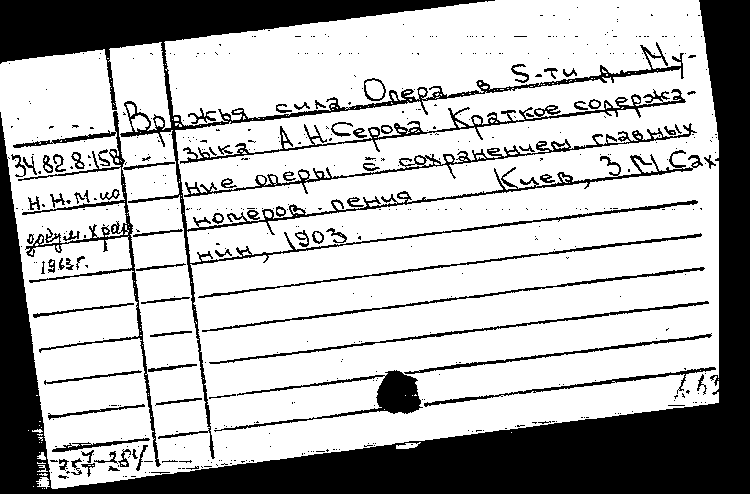 Вражья сила. Опера в 5-ти д. Му-
зыка А.Н.Серова. Краткое содержа-
ние оперы с сохранением главных
номеров пения. Киев, З.М.Сах-
нин, 1903.
34.82.8:158
Н.Н.М. ис
докум. хран.
1963 г.
357-384